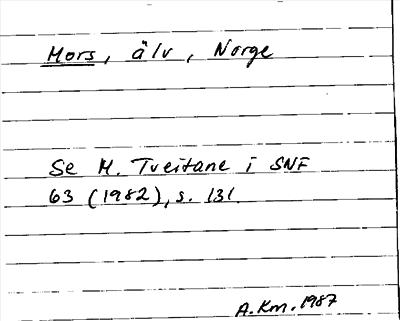 Mors, älv, Norge
Se M. Tveitane i SNF
63 (1982), s. 131.
A.Km. 1987